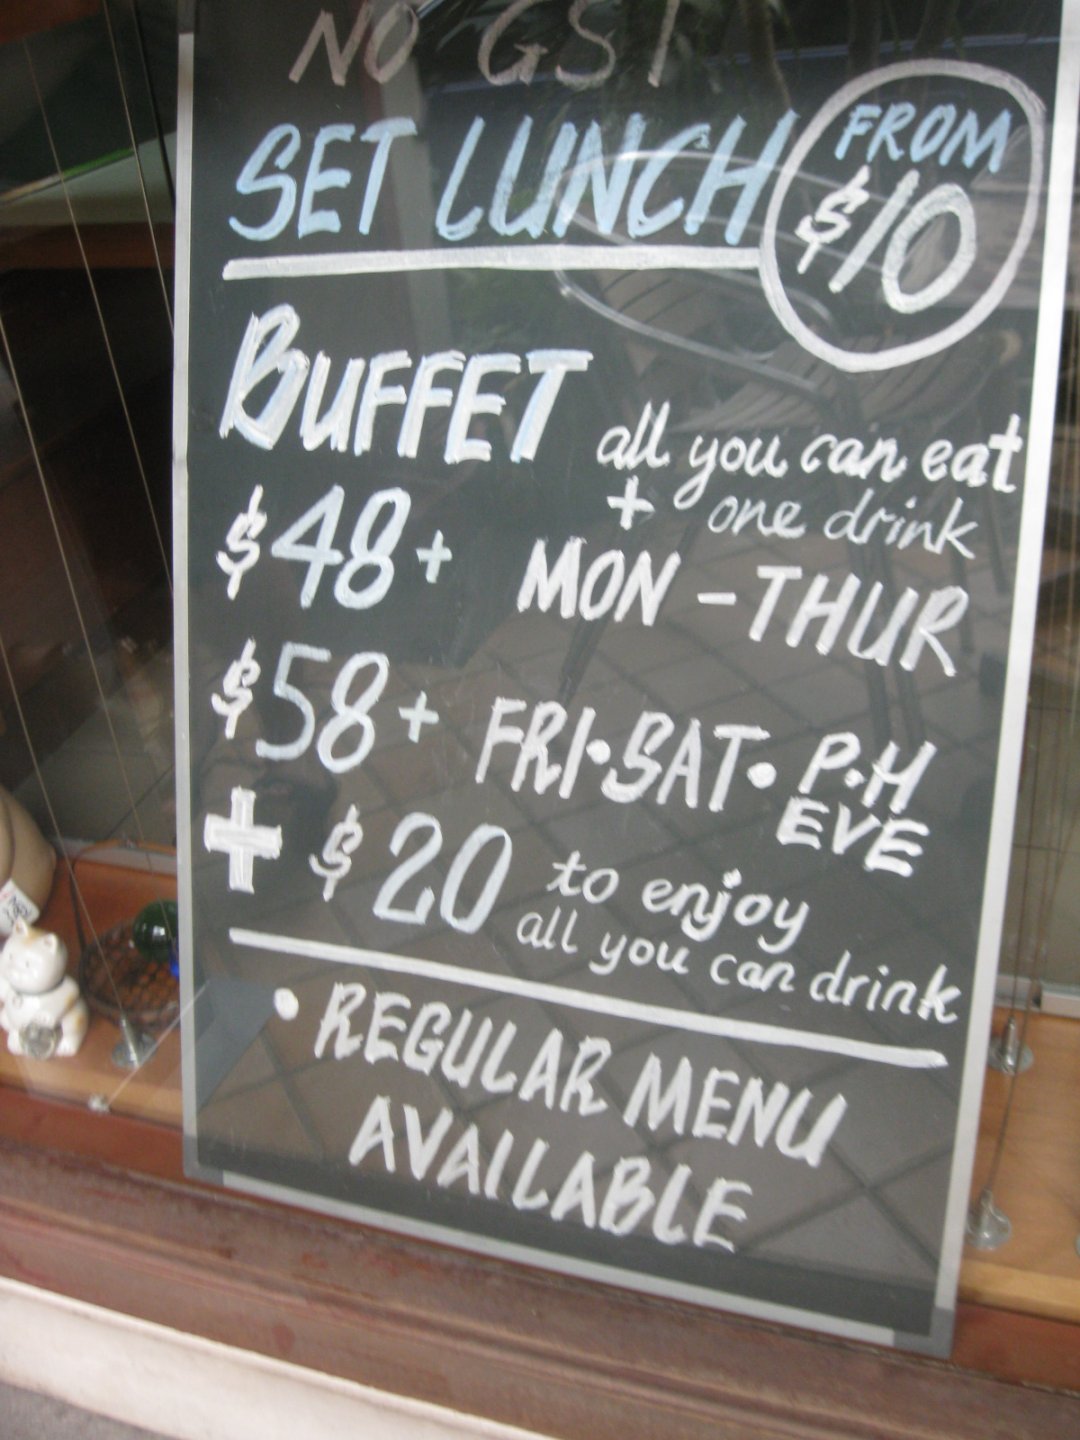 NO GST
SET LUNCH
FROM
$10
BUFFET all you can eat
+ one drink
$48+ MON - THUR
$58+ FRI·SAT· P.H
EVE
+ $20 to enjoy
all you can drink
· REGULAR MENU
AVAILABLE